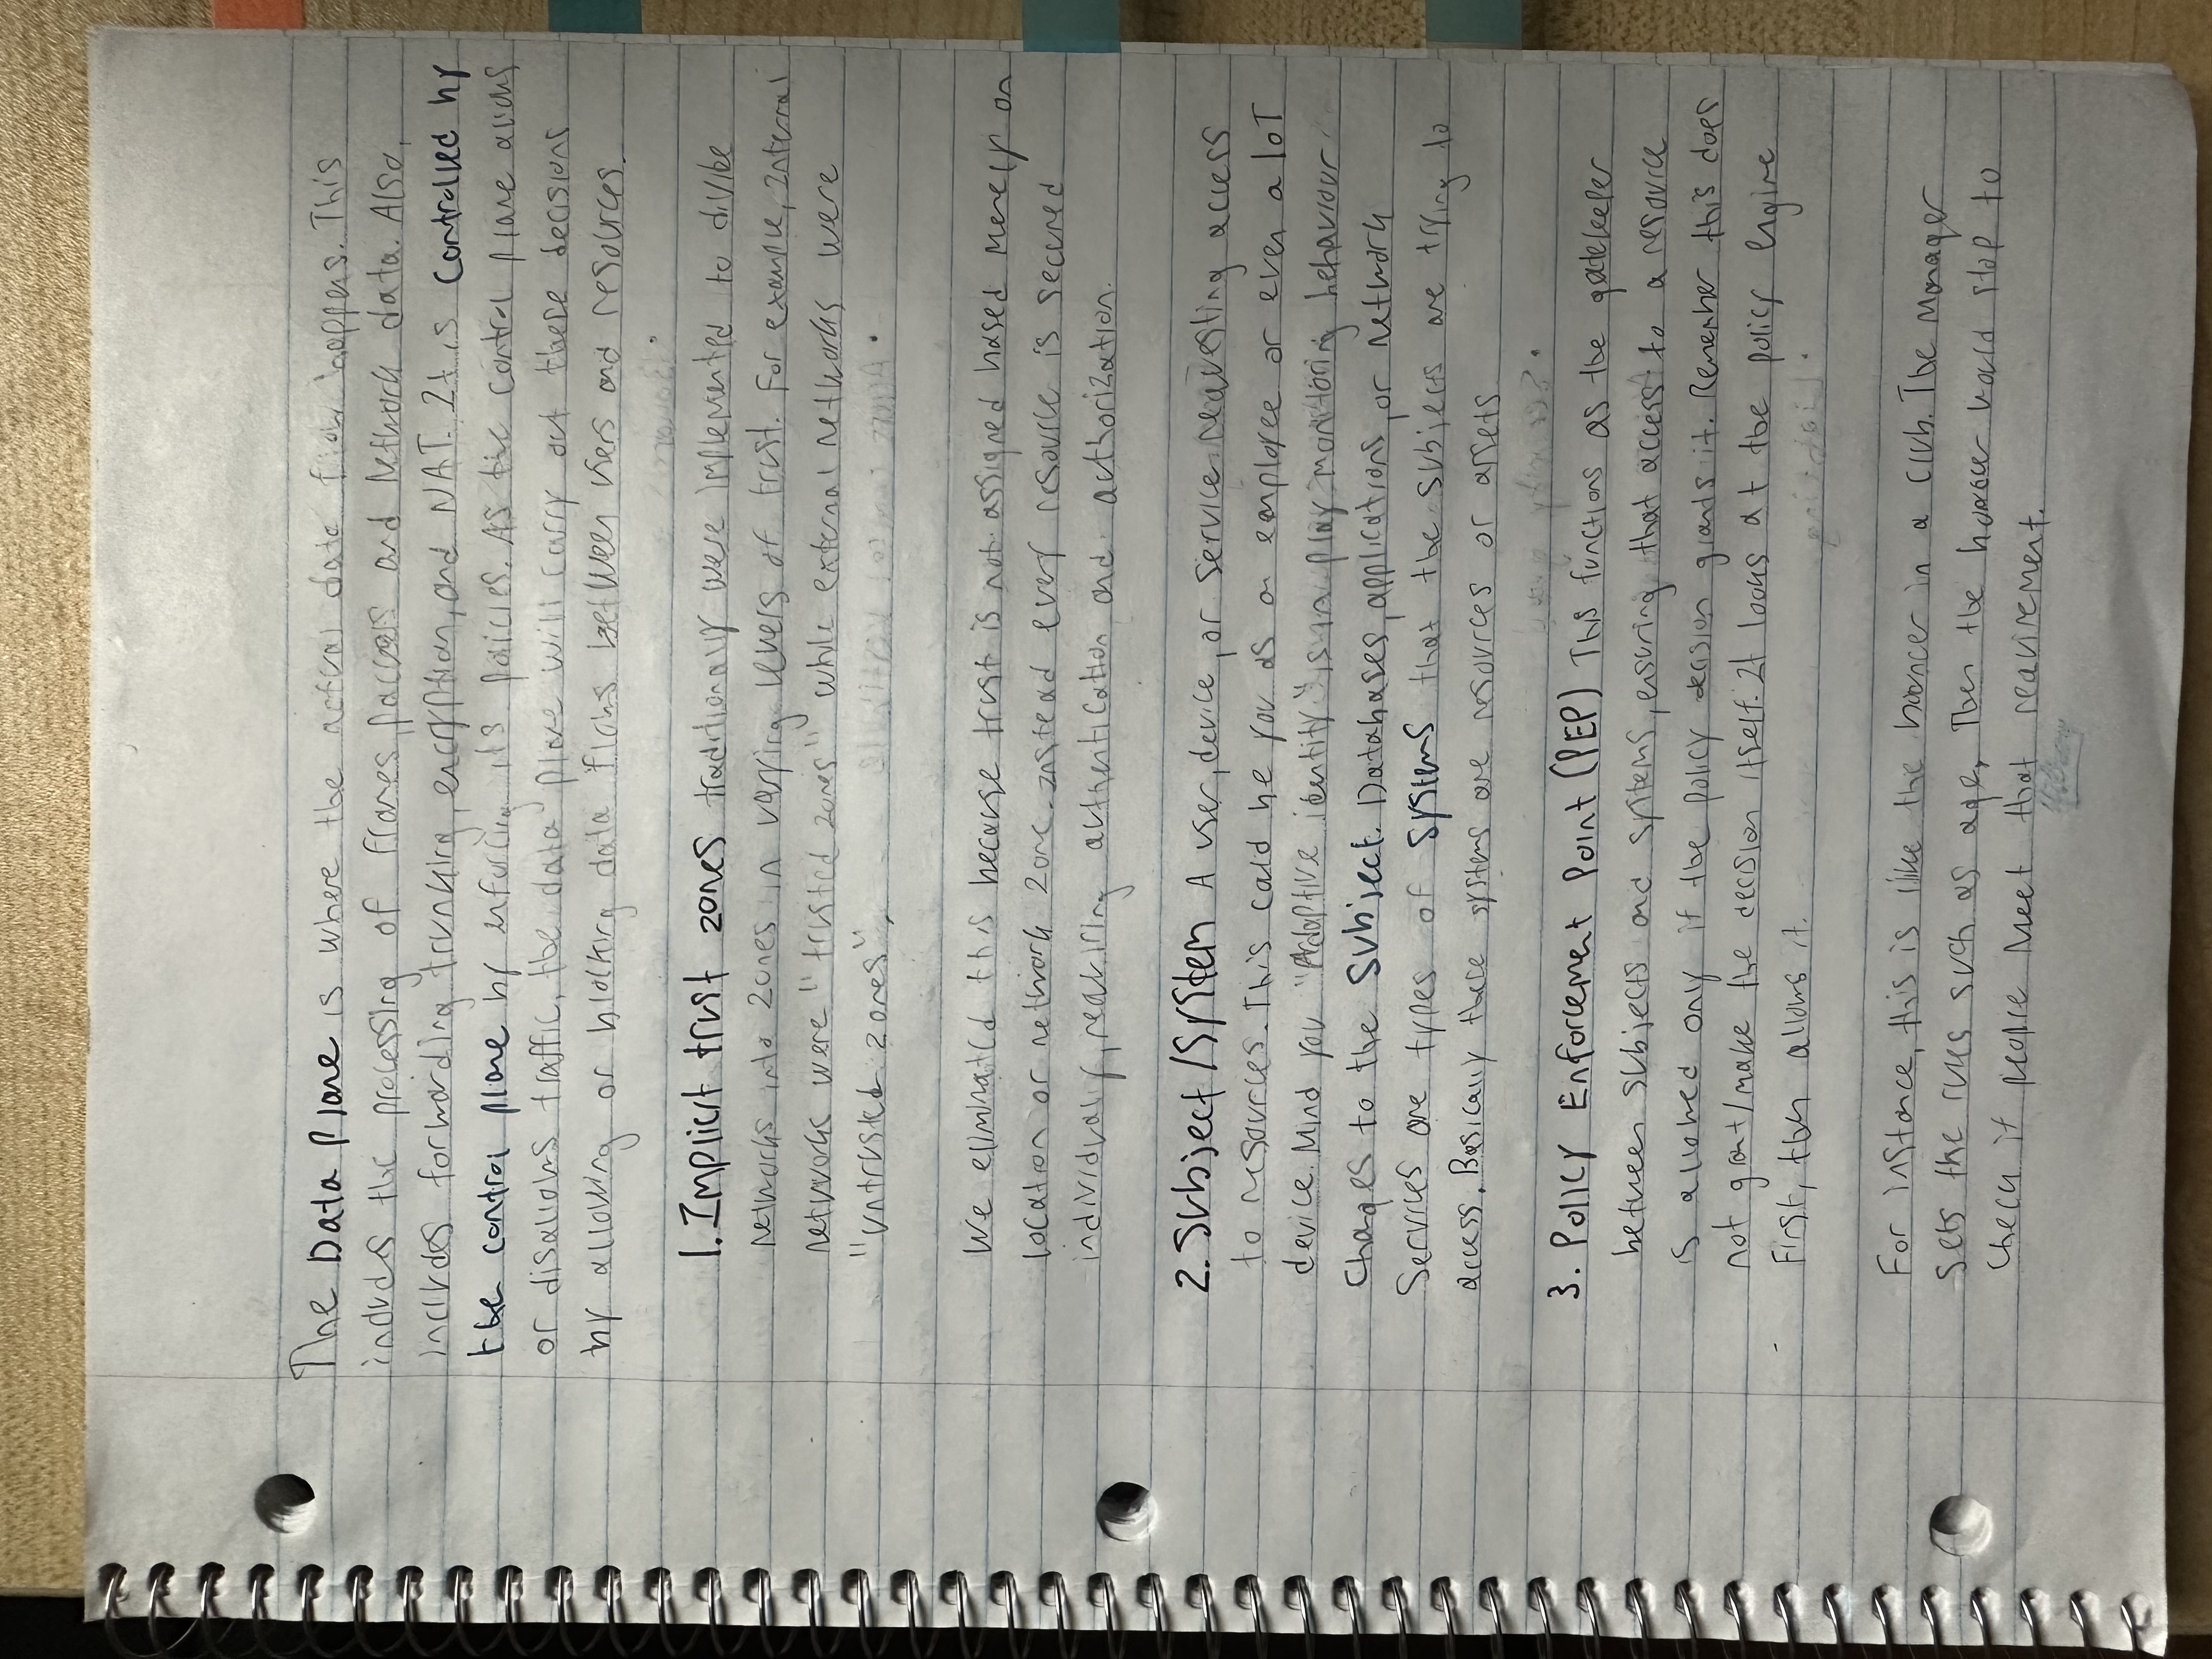 The Data Plane is where the actual data flow happens. This
includes the processing of frames, packets and network data. Also,
includes forwarding, trunking, encryption, and NAT. It is controlled by
the control plane by enforcing its policies. As the control plane allows
or disallows traffic, the data plane will carry out these decisions
by allowing or blocking data flows between users and resources.
1. Implicit trust zones traditionally were implemented to divide
networks into zones in varying levels of trust. For example, Internal
networks were "trusted zones" while external networks were
"untrusted zones".
We eliminated this because trust is not assigned based merely on
location or network zone. Instead every resource is secured
individually, requiring authentication and authorization.
2. Subject/System A user, device, or service requesting access
to resources. This could be you as an employee or even a IoT
device. Mind you "Adaptive identity" is in play monitoring behaviour
changes to the subject. Databases, applications, or network
services are types of systems that the subjects are trying to
access. Basically these systems are resources or assets
3. Policy Enforcement Point (PEP) This functions as the gatekeeper
between subjects and systems, ensuring that access to a resource
is allowed only if the policy decision grants it. Remember this does
not grant/make the decision itself. It looks at the policy engine
first, then allows it.
For instance, this is like the bouncer in a club. The manager
sets the rules such as age, Then the bouncer would stop to
check if people meet that requirement.